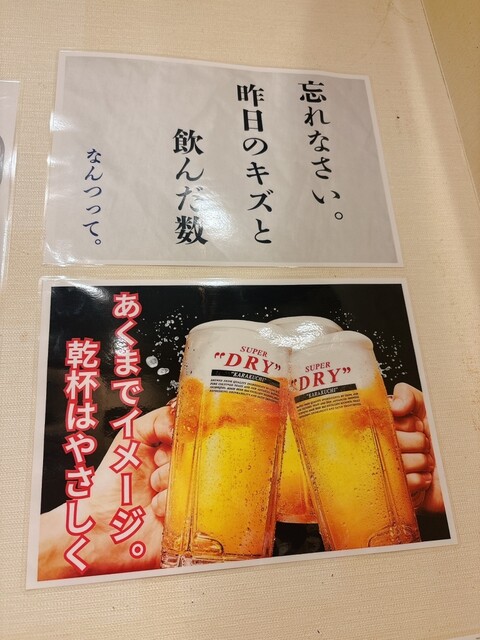 忘れなさい。
昨日のキズと
飲んだ数
なんつって。
あくまでイメージ。
乾杯はやさしく
SUPER
"DRY"
"KARAKUCHI"
SUPER
"DRY"
"KARAKUCHI"